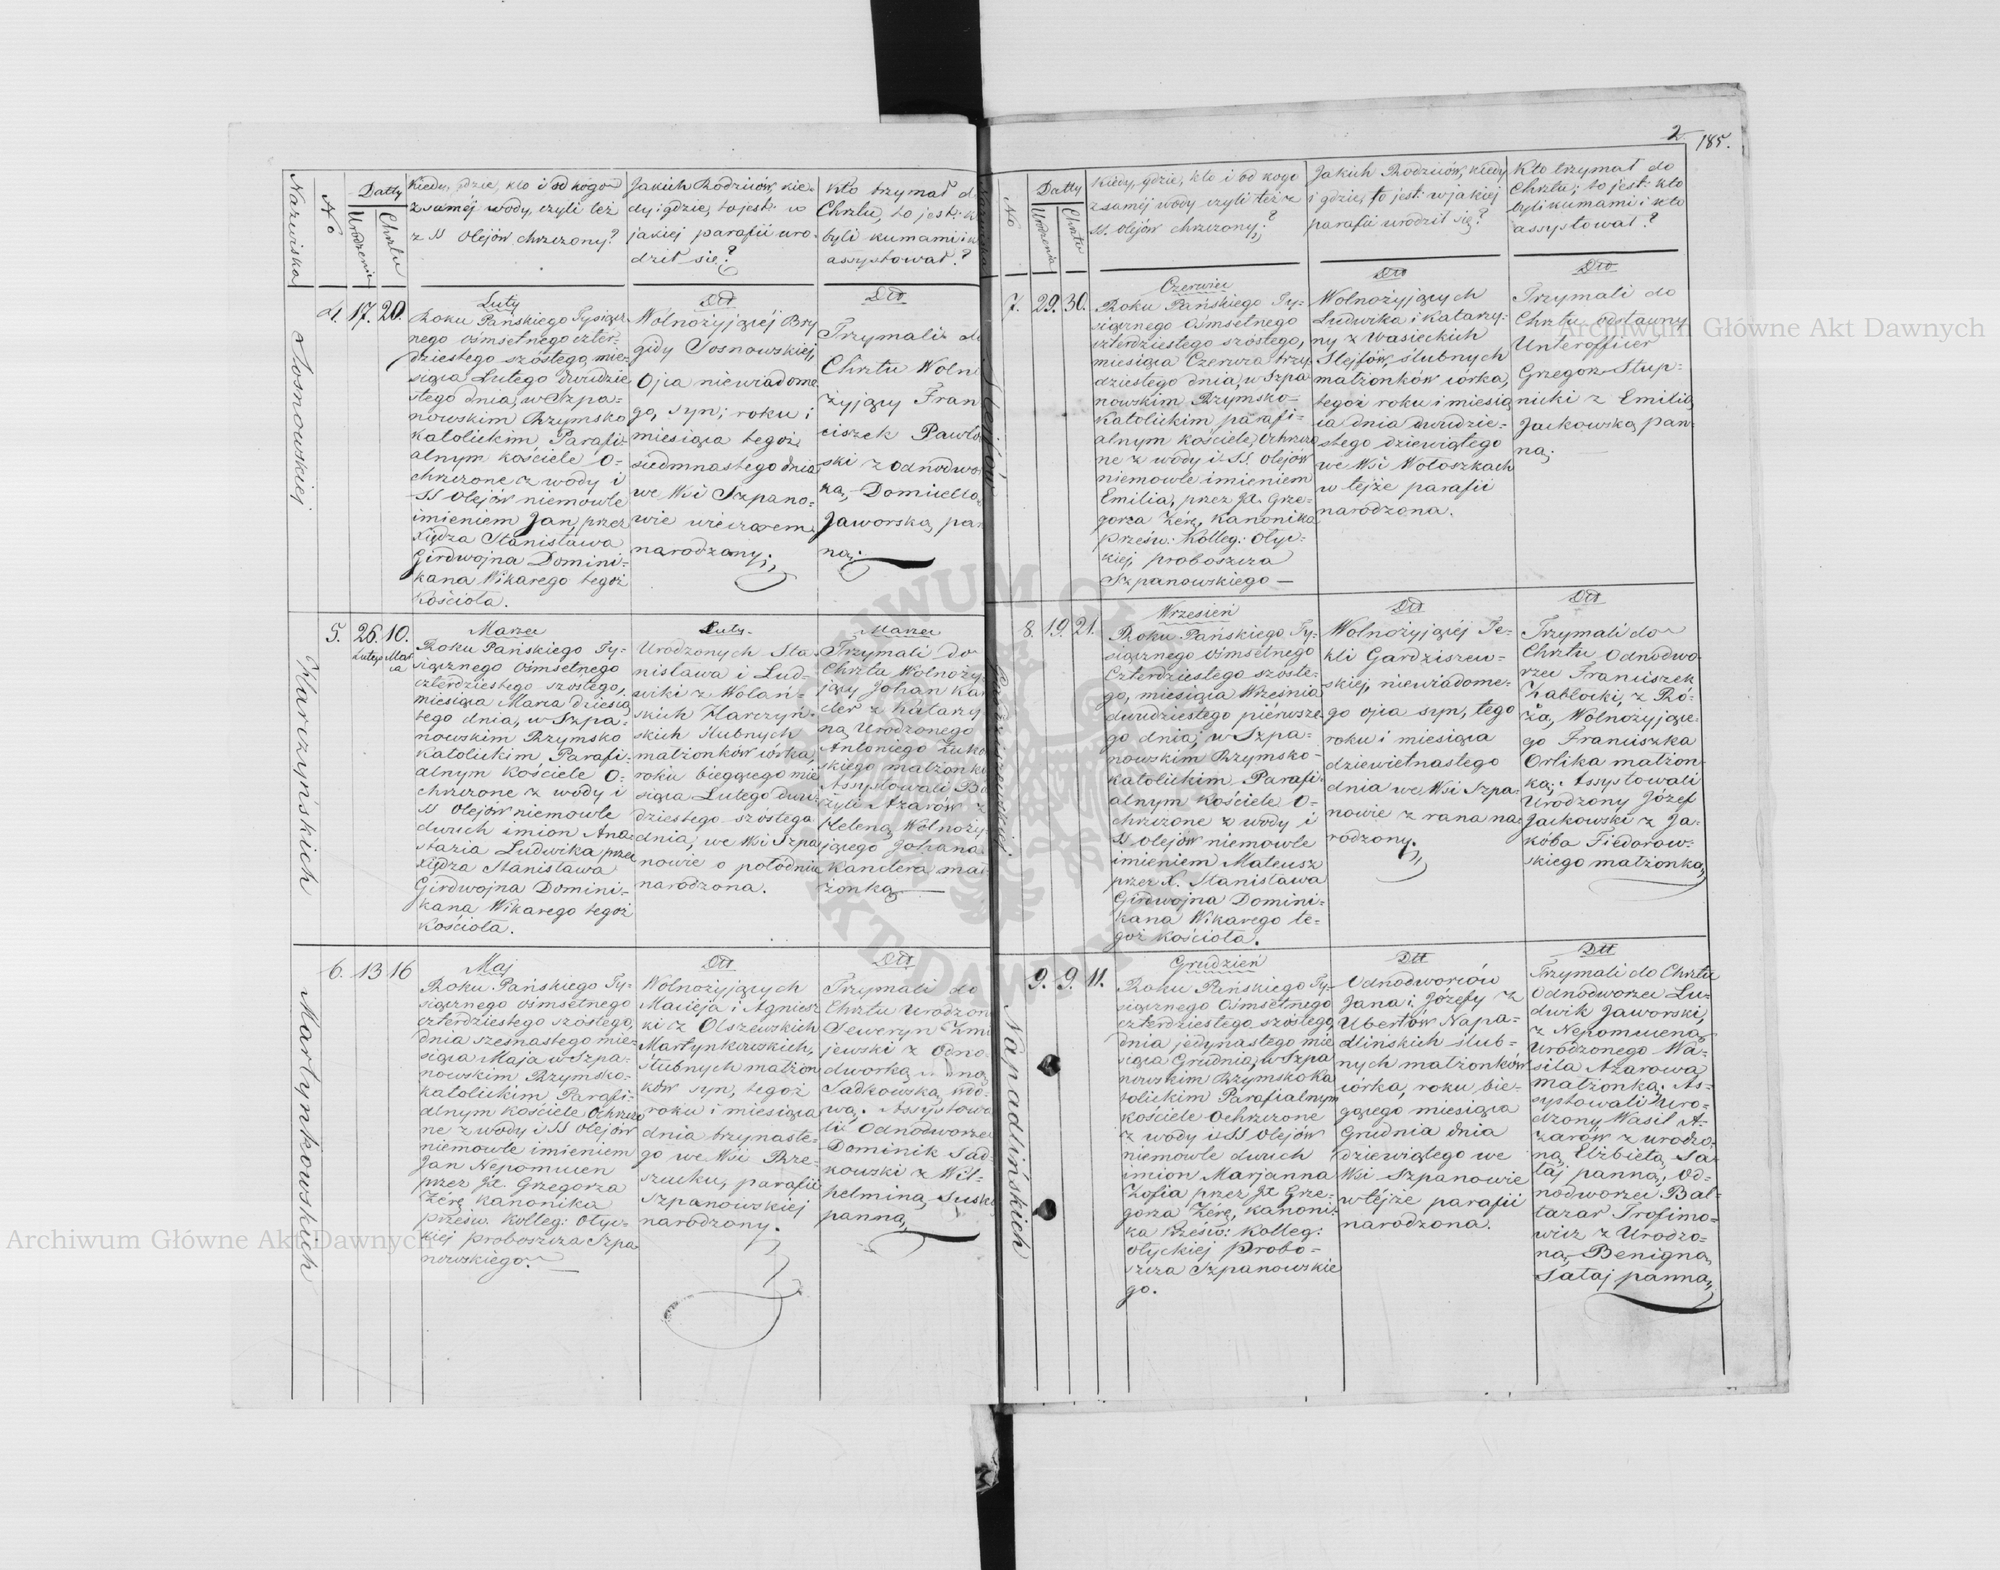 2
185.
Nazwiska
No
Datty
Urodzenia
Chrztu
Kiedy, gdzie, kto i od kogo
z samej wody, czyli też
z SS Olejów chrzczony?
Jakich Rodziców, kie-
dy i gdzie, to jest: w
jakiej parafii uro-
dził się?
Kto trzymał d
Chrztu, to jest: k
byli kumami i k
assystował?
Sosnowskiej
4.
17.
20.
Luty
Roku Pańskiego Tysiącz-
nego ośmsetnego czter-
dziestego szóstego, mie-
siąca Lutego dwudzie
stego dnia, w Szpa-
nowskim Rzymsko
Katolickim Parafi-
alnym kościele O-
chrzczone z wody i
SS Olejów niemowle
imieniem Jan, przez
Xiędza Stanisława
Girdwojna Domini-
kana Wikarego tegoż
Kościoła.
Dtt
Wolnożyjącej Bry
gidy Sosnowskiej,
Ojca niewiadome
go, syn; roku i
miesiąca tegoż
siedmnastego dnia
we Wsi Szpano-
wie wieczorem
narodzony;
Dtt
Trzymali do
Chrztu Woln
żyjący Fran
ciszek Pawło
ski z odnodwor
ką, Domicellą
Jaworską pan
ną;
Harczyńskich
5.
26.
Lutego
10.
Mar
ca
Marzec
Roku Pańskiego Ty-
siącznego ośmsetnego
czterdziestego szóstego,
miesiąca Marca dziesią
tego dnia, w Szpa-
nowskim Rzymsko
Katolickim, Parafi-
alnym Kościele O-
chrzczone z wody i
SS Olejów niemowle
dwuch imion Ana-
stazia Ludwika, przez
Xiędza Stanisława
Girdwojna Domini-
kana Wikarego tegoż
Kościoła.
Luty.
Urodzonych Sta
nisława i Lud-
wiki z Wolań-
skich Harczyń-
skich ślubnych
małżonków córka,
roku bieżącego mie
siąca Lutego dwu-
dziestego szóstego
dnia, we Wsi Szpa
nowie o południu
narodzona.
Marzec
Trzymali do
Chrztu Wolnoży
jący Johan Kan
cler z Katarzy
ną Urodzonego
Antoniego Łuko
skiego małżonką
Assystowali
Azarów z
Heleną Wolnoży
jącego Johana
Kanclera mał
żonką
Martynkowskich
6.
13
16
Maj
Roku Pańskiego Ty-
siącznego ośmsetnego
czterdziestego szóstego,
dnia szesnastego mie-
siąca Maja w Szpa-
nowskim Rzymsko-
katolickim Parafi-
alnym kościele Ochrzczo
ne z wody i SS Olejów
niemowle imieniem
Jan Nepomucen
przez Jx. Grzegorza
Żérę kanonika
Prześw. Kolleg: Ołyc-
kiej Proboszcza Szpa
nowskiego.
Dtt
Wolnożyjących
Macieja i Agniesz
ki z Olszewskich
Martynkowskich,
ślubnych małżon
ków syn, tegoż
roku i miesiąca
dnia trzynaste-
go we Wsi Rze-
szucku, parafii
Szpanowskiej
narodzony.
Dtt
Trzymali do
Chrztu Urodzon
Seweryn Żmi
jewski z Odno-
dworką
Sadkowską wdo-
wą. Assystowa
li Odnodworzec
Dominik Sad
kowski z Wil-
helminą Suską
panną
No
Datty
Urodzenia
Chrztu
Kiedy, gdzie, kto i od kogo
z samej wody czyli też z
SS. Olejów chrzczony;?
Jakich Rodziców, kiedy
i gdzie, to jest: w jakiej
parafii urodził się?
Kto trzymał do
Chrztu; to jest: kto
byli kumami i kto
assystował?
Slejfów
7.
29.
30.
Czerwiec
Roku Pańskiego Ty-
siącznego Ośmsetnego
czterdziestego szóstego,
miesiąca Czerwca trzy-
dziestego dnia, w Szpa
nowskim Rzymsko-
Katolickim parafi-
alnym kościele, Ochrzczo
ne z wody i SS. Olejów
niemowle imieniem
Emilia, przez Jx. Grze-
gorza Żérę, Kanonika
prześw: Kolleg: Ołyc-
kiej, proboszcza
Szpanowskiego —
Dtt
Wolnożyjących
Ludwika i Katarzy-
ny z Wasieckich
Slejfów, ślubnych
małżonków córka,
tegoż roku i miesią
ca dnia dwudzie-
stego dziewiątego
we Wsi Wołoszkach
w tejże parafii
narodzona.
Dtt
Trzymali do
Chrztu odstawny
Unterofficer
Grzegorz Stup-
nicki z Emilią
Jackowską pan-
ną;
Gardziszewskiej
8.
19.
21.
Wrzesień
Roku Pańskiego Ty-
siącznego ośmsetnego
Czterdziestego szóste-
go, miesiąca Września
dwudziestego pierwsze-
go dnia; w Szpa-
nowskim Rzymsko-
katolickim Parafi-
alnym Kościele O-
chrzczone z wody i
SS olejów niemowle
imieniem Mateusz
przez X. Stanisława
Girdwojna Domini-
kana Wikarego te-
goż kościoła.
Dtt
Wolnożyjącej Te-
kli Gardziszew-
skiej, niewiadome-
go ojca syn, tego
roku i miesiąca
dziewietnastego
dnia we Wsi Szpa-
nowie z rana na
rodzony.
Dtt
Trzymali do
Chrztu Odnodwo-
rzec Franciszek
Zabłocki, z Ró-
żą, Wolnożyjące-
go Franciszka
Orlika małżon-
ką; Assystowali
Urodzony Józef
Jackowski z Ja-
kóba Fiedorow-
skiego małżonką
Napadlińskich
9.
9.
11.
Grudzień
Roku Pańskiego Ty-
siącznego Ośmsetnego
czterdziestego szóstego,
dnia jedynastego mie
siąca Grudnia, w Szpa
nowskim Rzymsko Ka
tolickim Parafialnym
kościele Ochrzczone
z wody i SS Olejów
niemowle dwuch
imion Marjanna
Zofia przez Jx Grze-
gorza Żérę, kanoni-
ka Prześw: Kolleg:
ołyckiej Probo-
szcza Szpanowskie
go.
Dtt
Odnodworców
Jana i Józefy z
Ubertów Napa-
dlińskich ślub-
nych małżonków
córka, roku bie-
żącego miesiąca
Grudnia dnia
dziewiątego we
Wsi Szpanowie
w tejże parafii
narodzona.
Dtt
Trzymali do Chrztu
Odnodworzec Lu-
dwik Jaworski,
z Nepomuceną
Urodzonego Wa-
sila Azarowa
małżonką; As-
systowali Uro-
dzony Wasil A-
zarów z urodzo-
ną Elżbietą Sa-
łaj panną, Od-
nodworzec Bal-
tazar Trofimo-
wicz z Urodzo-
ną Benigną
Sałaj panną,
Archiwum Główne Akt Dawnych
Archiwum Główne Akt Dawnych